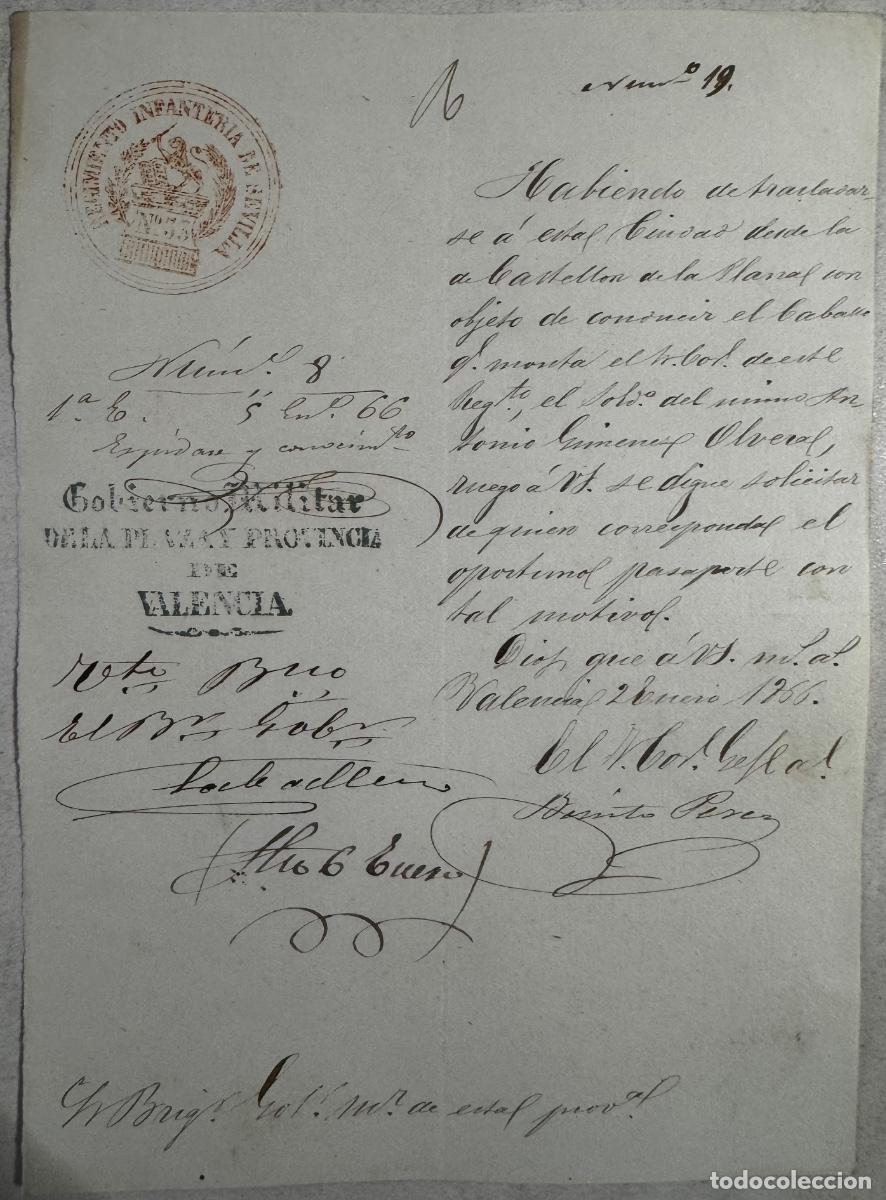 Num.o 19.
REGIMIENTO INFANTERIA DE SEVILLA
Nº 33
Habiendo de trasladar-
se á esta Ciudad desde la
de Castellon de la Plana con
objeto de conducir el Caballo
q.e monta el T. Cor.l de este
Reg.to, el sold.o del mismo An
tonio Gimenez Olvera,
ruego á VS. se digne solicitar
de quien corresponda el
oportuno pasaporte con
tal motivo.
Dios gue á VS. m.s a.s
Valencia 2 Enero 1866.
El T. Cor.l Gefe a.l
Benito Perez
Núm.o 8
1.a E. 5 En.o 66
Espídase y conocim.to
Gobierno Militar
DE LA PLAZA Y PROVINCIA
DE
VALENCIA.
El Br. Gobr.
6 Enero
Sr Brigr. Gobr. Mr. de esta prov.a
todocoleccion